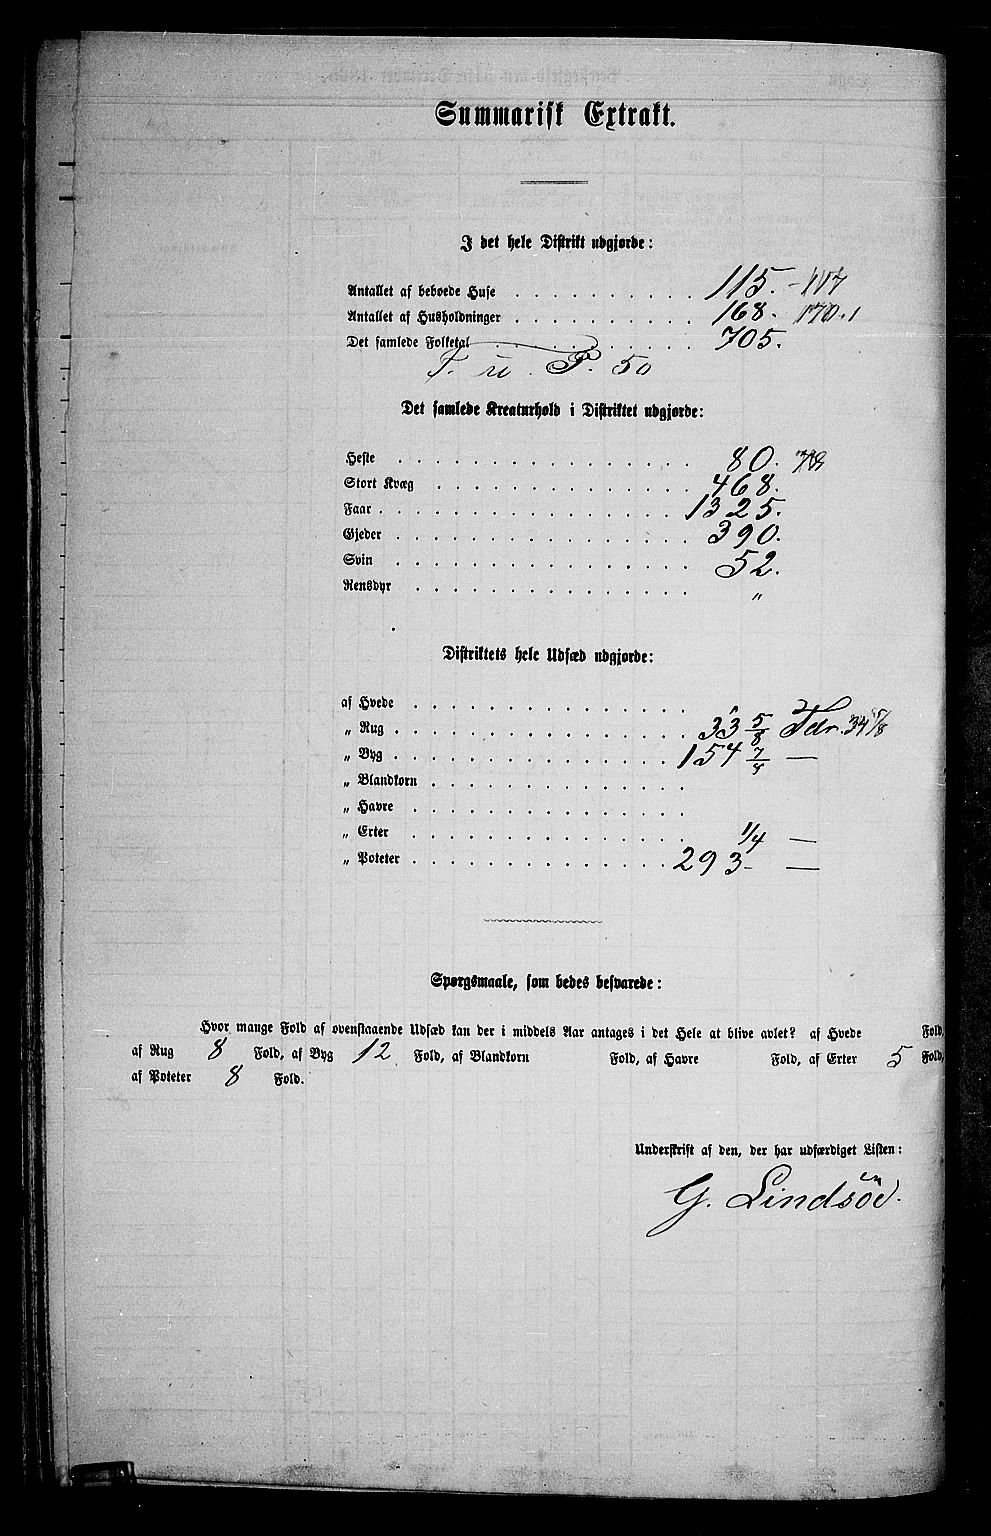 Summarisk Extrakt.
I det hele Distrikt udgjorde:
Antallet af beboede Huse . . . . . . . . . . 115. - 117
Antallet af Husholdninger . . . . . . . . . 168. 170.1
Det samlede Folketal . . . . . . . . . . 705.
F. u. P. 50
Det samlede Kreaturhold i Distriktet udgjorde:
Heste . . . . . . . . . . . . . . . 80.
Stort Kvæg . . . . . . . . . . . . . 468.
Faar . . . . . . . . . . . . . . . . 1325.
Gjeder . . . . . . . . . . . . . . . 390.
Svin . . . . . . . . . . . . . . . 52.
Rensdyr . . . . . . . . . . . . . . „
Distriktets hele Udsæd udgjorde:
af Hvede . . . . . . . . . . . . . .
„ Rug . . . . . . . . . . . . . . . 33 5/8 Tdr. 34 5/8
„ Byg . . . . . . . . . . . . . . . 154 7/4 —
„ Blandkorn . . . . . . . . . . . . .
„ Havre . . . . . . . . . . . . . .
„ Erter . . . . . . . . . . . . . . 1/4 —
„ Poteter . . . . . . . . . . . . . 293- —
Spørgsmaale, som bedes besvarede:
Hvor mange Fold af ovenstaaende Udsæd kan der i middels Aar antages i det Hele at blive avlet? af Hvede Fold,
af Rug 8 Fold, af Byg 12 Fold, af Blandkorn Fold, af Havre Fold, af Erter 5 Fold,
af Poteter 8 Fold.
Underskrift af den, der har udfærdiget Listen:
G. Lindsöen.